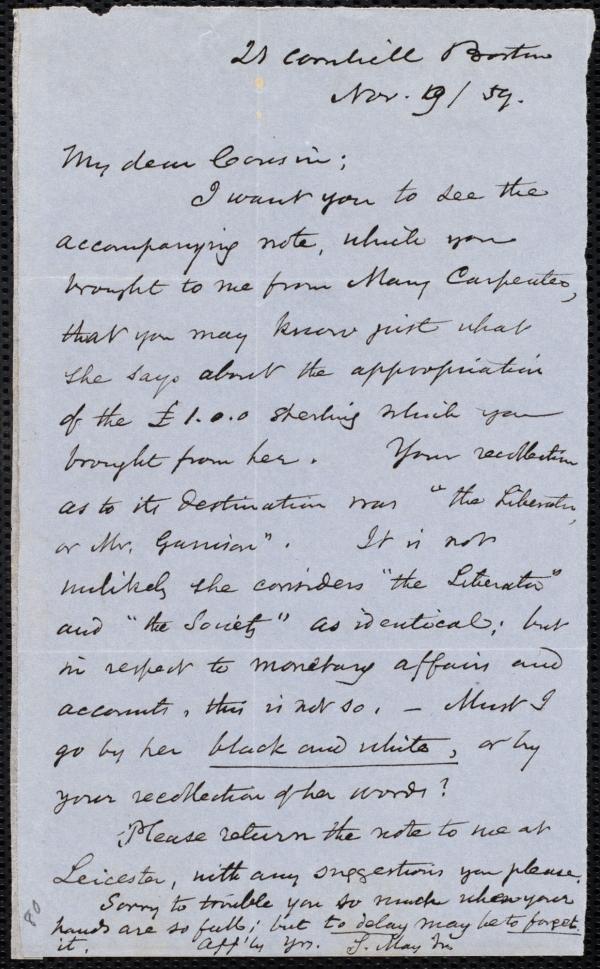 21 Cornhill Boston
Nov. 19 / 59.
My dear Cousin;
I want you to see the
accompanying note, which you
brought to me from Mary Carpenter,
that you may know just what
she says about the appropriation
of the £1.0.0 sterling which you
brought from her. Your recollection
as to its destination was "the Liberator,
or Mr. Garrison". It is not
unlikely she considers "the Liberator"
and "the Society" as identical; but
in respect to monetary affairs and
accounts, this is not so. — Must I
go by her black and white, or by
your recollection of her words?
Please return the note to me at
Leicester, with any suggestions you please.
Sorry to trouble you so much when your
hands are so full; but to delay may be to forget
it. Aff'ly Yrs. S. May Jr.
80